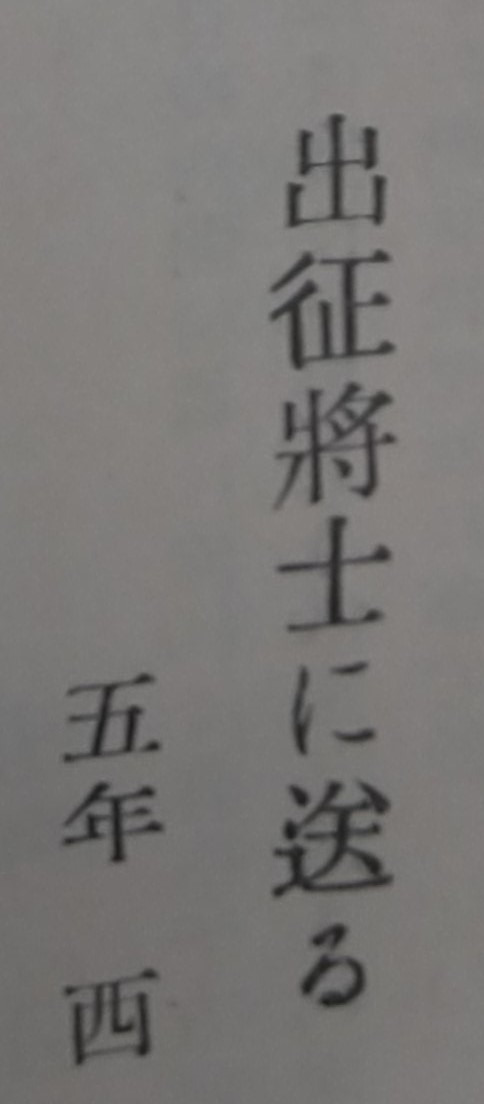 出征將士に送る
五年 西